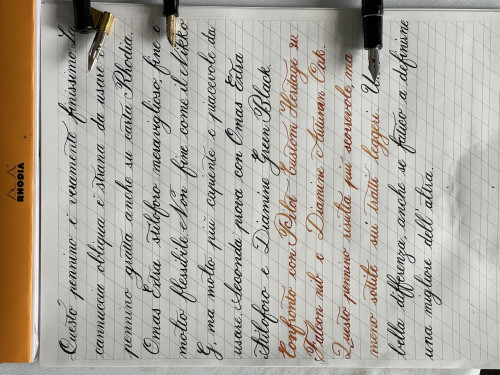 Questo pennino è veramente finissimo. La
cannuccia obliqua è strana da usare
pennino gratta anche su carta Rhodia.
Omas Extra stilografo meraviglioso, fine e
molto flessibile. Non fine come il Nikko
G, ma molto più capiente e piacevole da
usare. Seconda prova con Omas Extra
stilografo e Diamine Green Black.
Confronto con Pilot Custom Heritage 912
Falcon nib e Diamine Autumn Oak.
Questo pennino risulta più scorrevole, ma
meno sottile sui tratti leggeri.
bella differenza, anche se fatico a definirne
una migliore dell'altra.
RHODIA